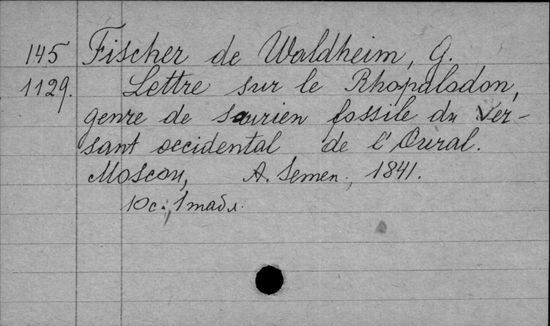 145 Fischer de Waldheim, G.
1129. Lettre sur le Rhopalodon,
genre de saurien fossile du ver-
sant occidental de l'Oural.
Moscou, A. Semen, 1841.
10 с., 1 табл.